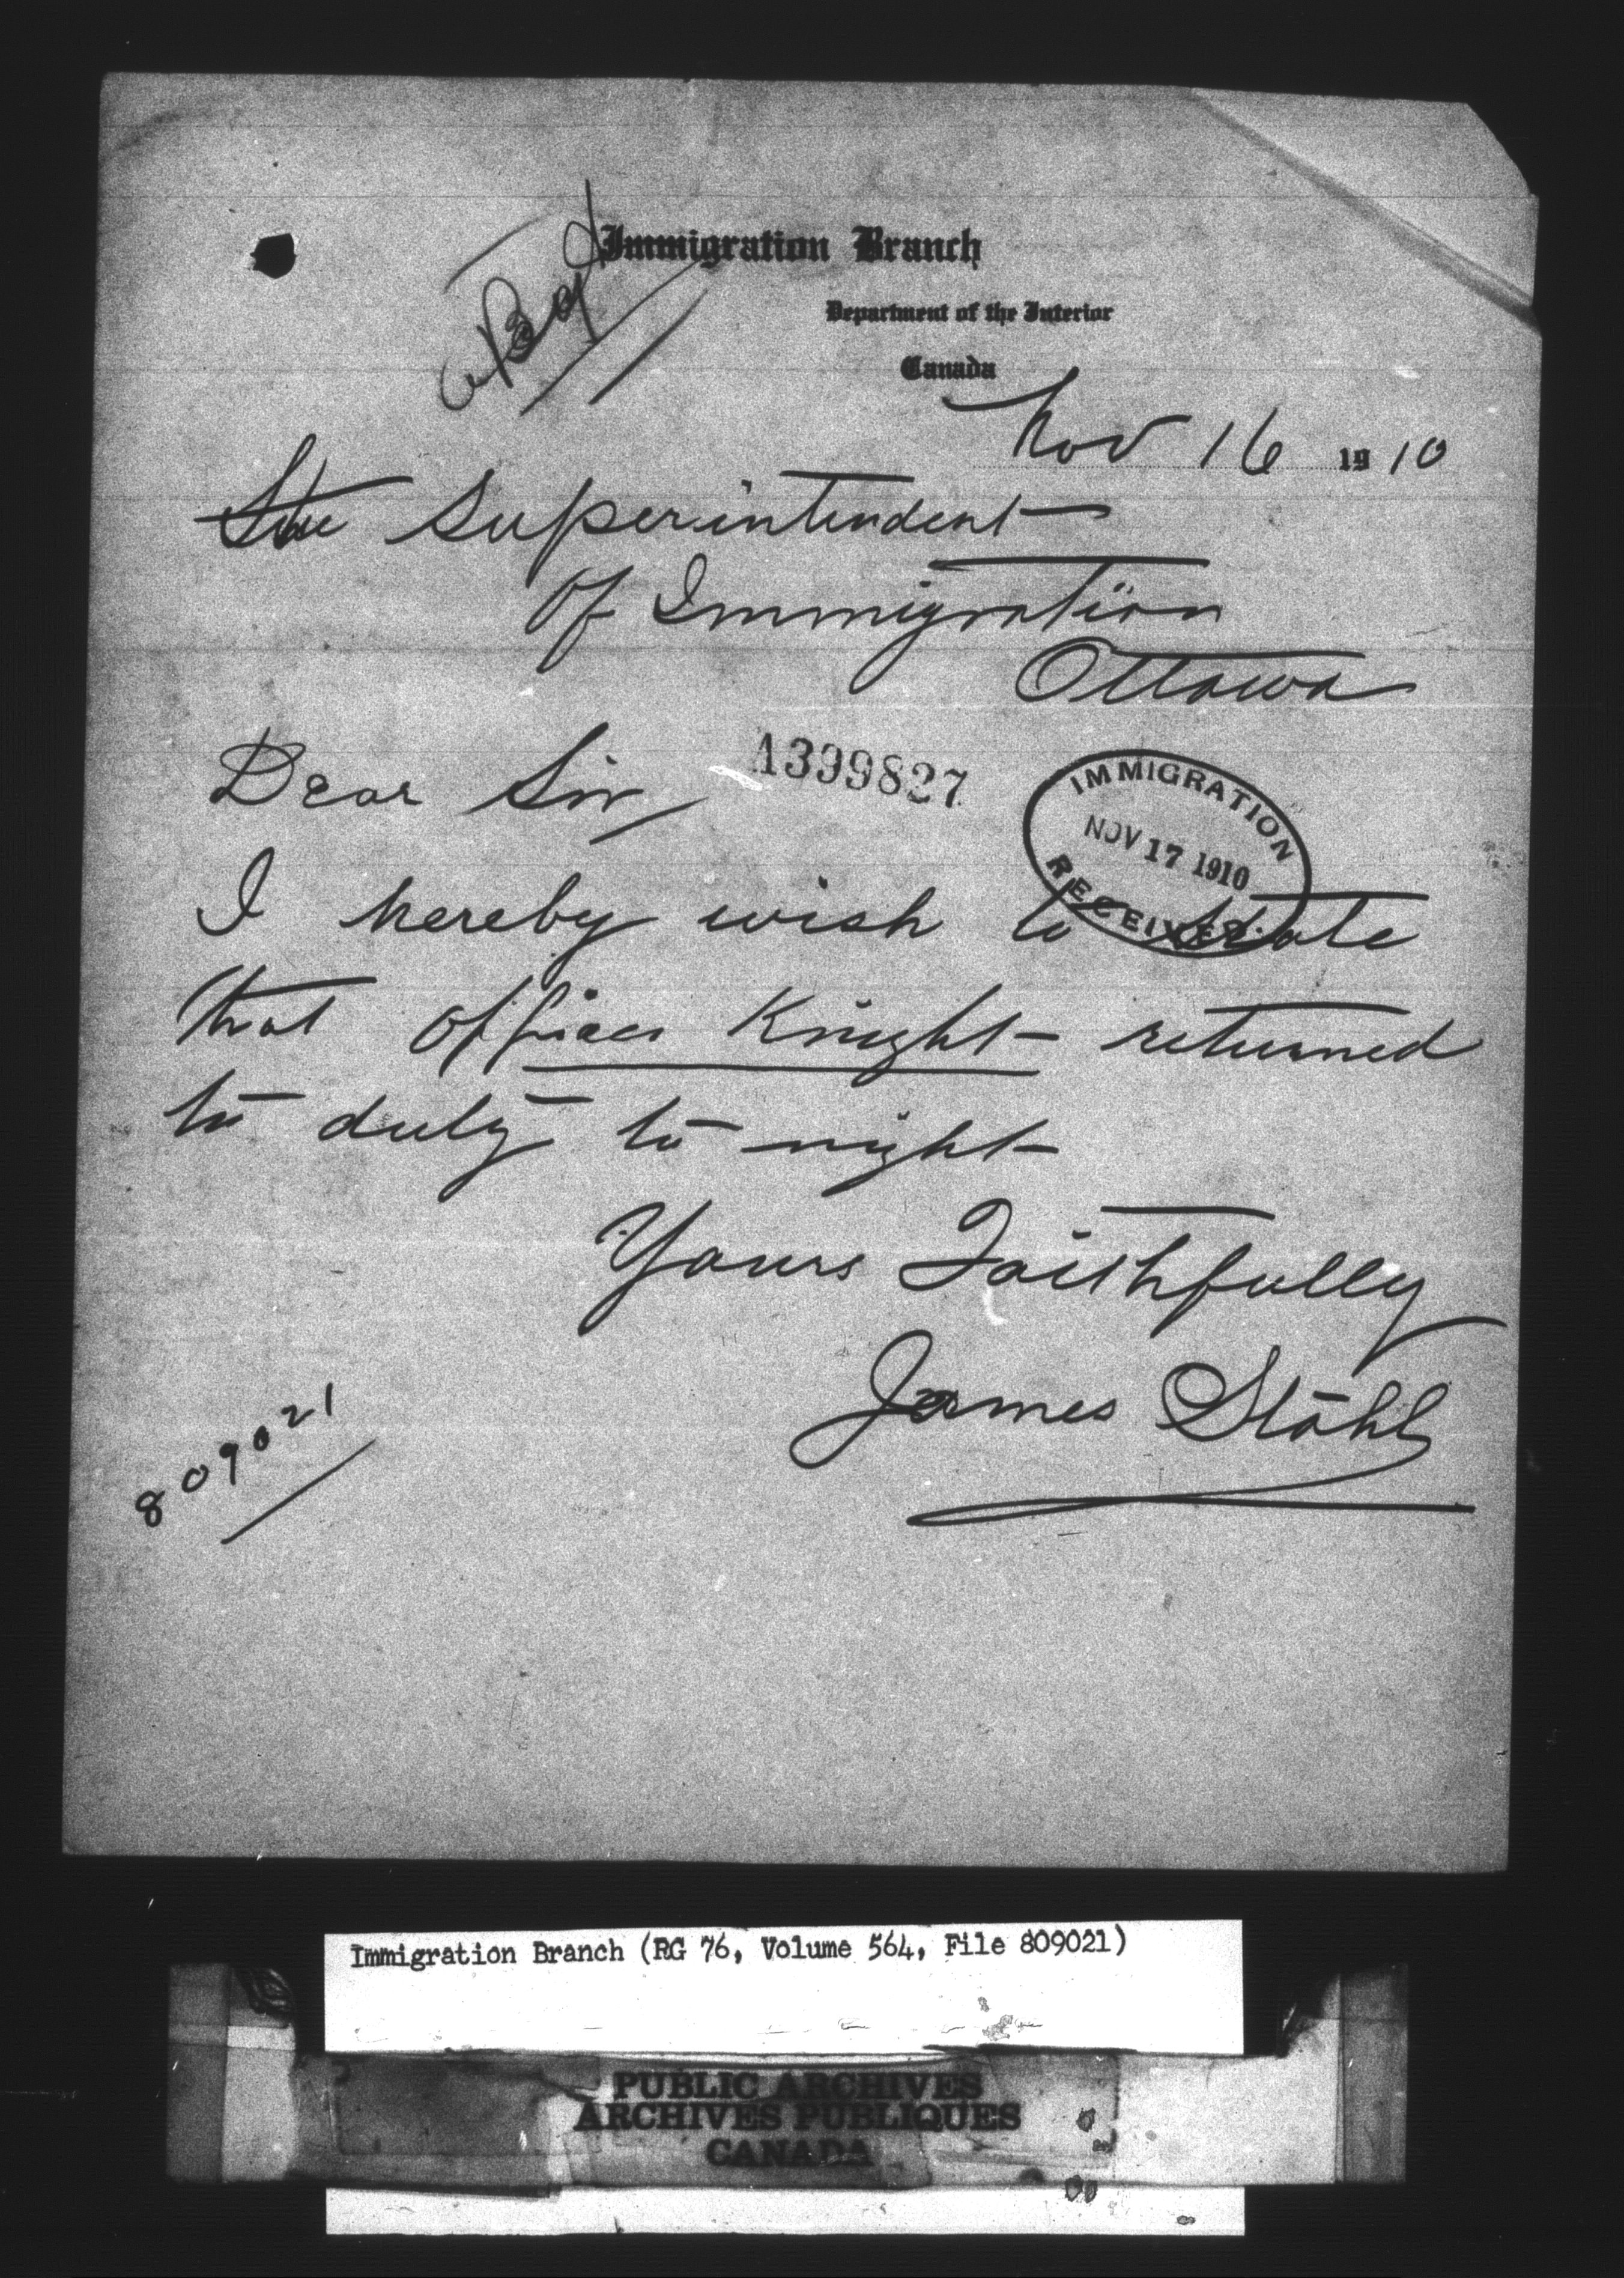 Immigration Branch
Department of the Interior
Canada
Nov 16 1910
The Superintendent
Of Immigration
Ottawa
Dear Sir
A399827
IMMIGRATION
NOV 17 1910
RECEIVED.
I hereby wish to state
that officer Knight returned
to duty to night
Yours Faithfully
James Stahl
809021
Immigration Branch (RG 76, Volume 564, File 809021)
PUBLIC ARCHIVES
ARCHIVES PUBLIQUES
CANADA